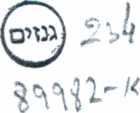 גנזים 234
89982-K